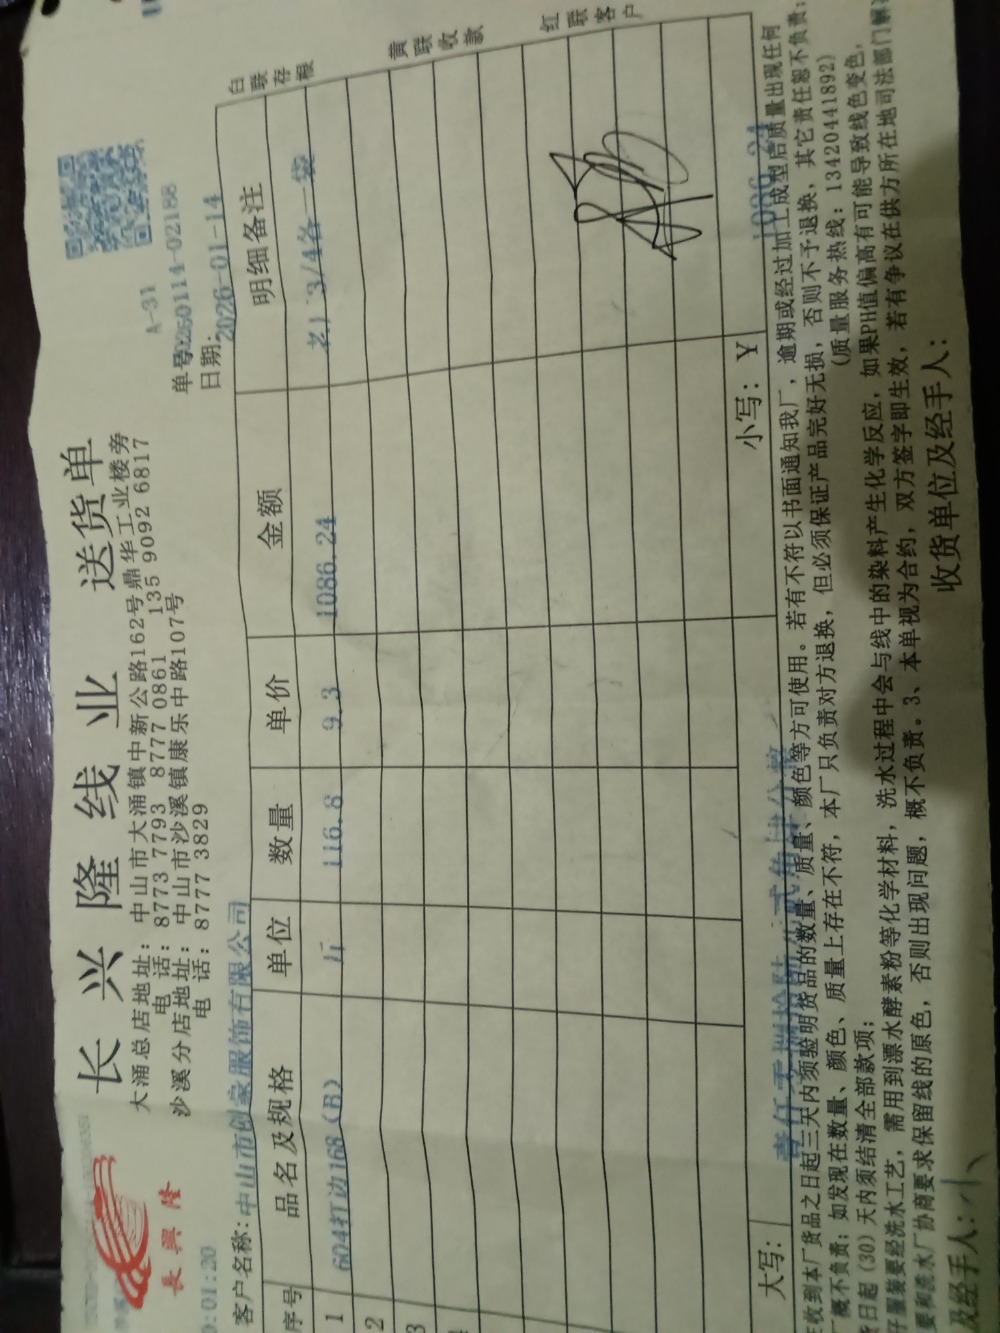 长兴隆线业 送货单
長興隆
大涌总店地址：中山市大涌镇中新公路162号鼎华工业楼旁
电 话：8773 7793 8777 0861 135 9092 6817
沙溪分店地址：中山市沙溪镇康乐中路107号
电 话：8777 3829
A-31
单号:
日期: 2026-01-14
0:01:20
客户名称: 中山市创豪服饰有限公司
序号 品名及规格 单位 数量 单价 金额 明细备注
1 604打边168(B) 斤 116.8 9.3 1086.24 3/4各一袋
2
3
白联存根
黄联收款
红联客户
大写: 小写: Y 1086.24
收到本厂货品之日起三天内须验明货品的数量、质量、颜色等方可使用。若有不符以书面通知我厂，逾期或经过加工成型后质量出现任何
概不负责；如发现在数量、颜色、质量上存在不符，本厂只负责对方退换，但必须保证产品完好无损，否则不予退换，其它责任恕不负责；
日起（30）天内须结清全部款项；
(质量服务热线: 13420441892)
服装要经洗水工艺，需用到漂水酵素粉等化学材料，洗水过程中会与线中的染料产生化学反应，如果PH值偏高有可能导致线色变色，
要和洗水厂协商要求保留线的原色，否则出现问题，概不负责。3、本单视为合约，双方签字即生效，若有争议在供方所在地司法部门解
及经手人: 收货单位及经手人: